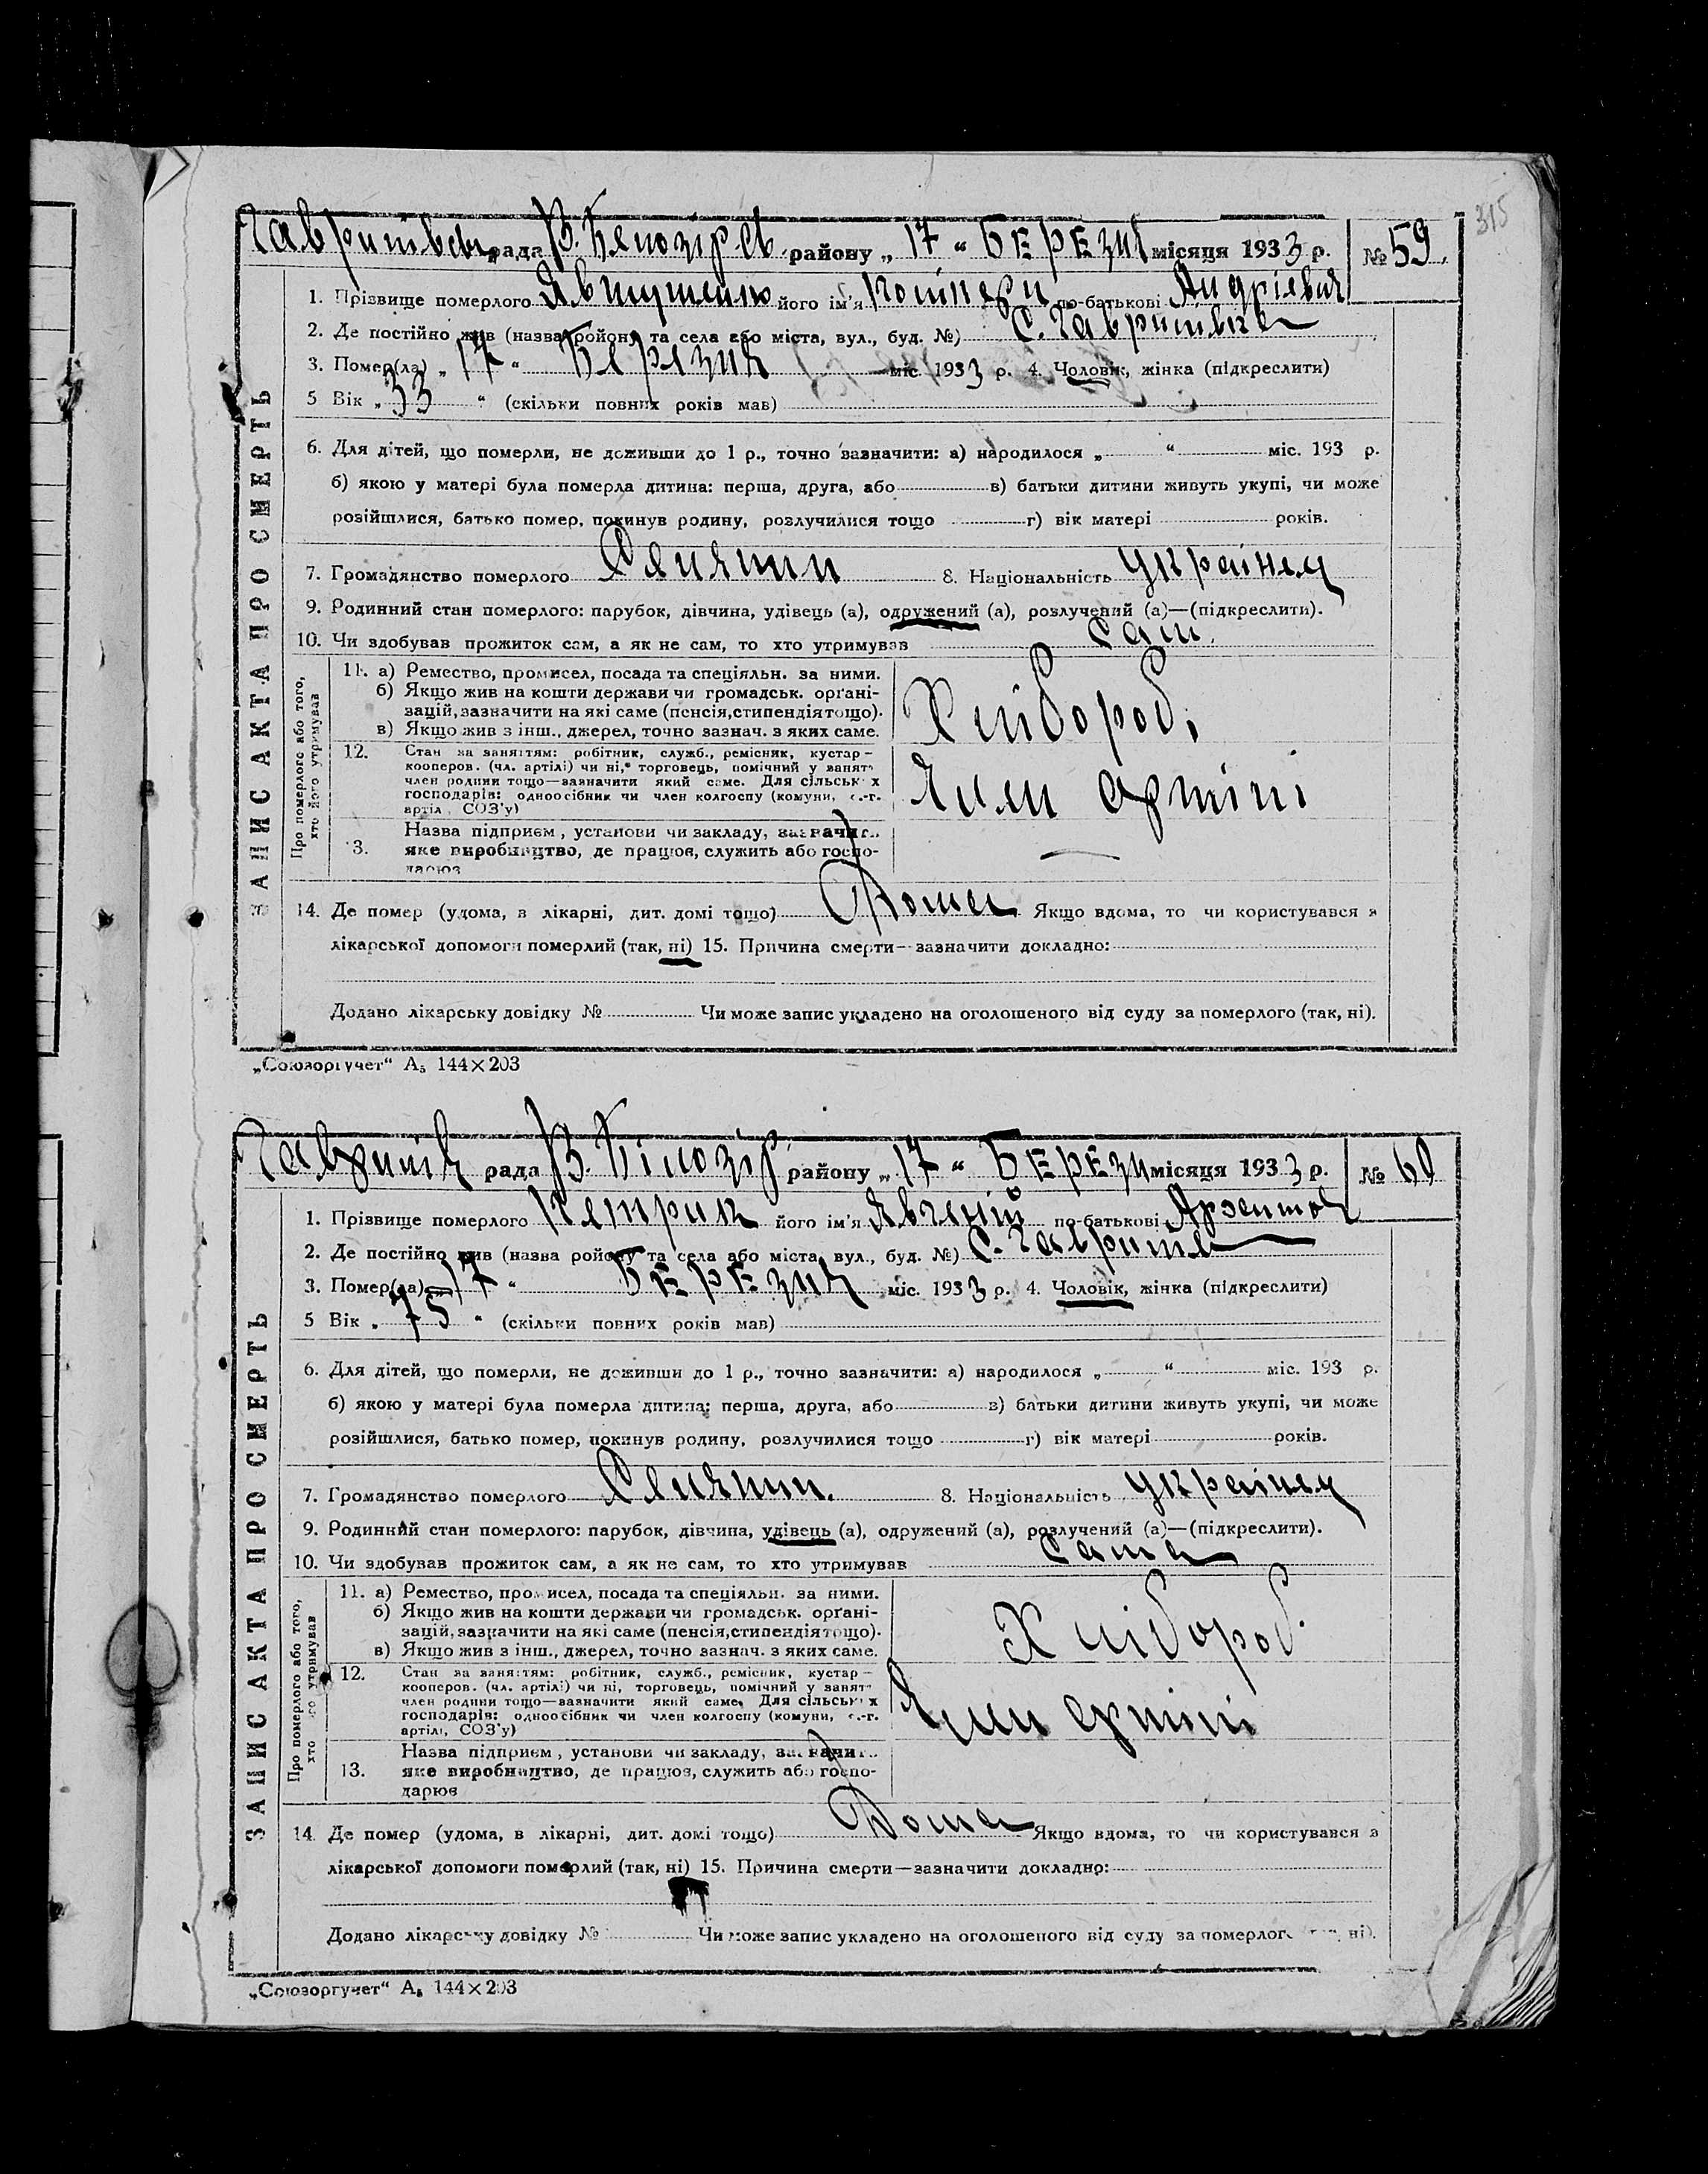 315
Гавритівська рада В. Білозірсь. району „ 17 “ БЕРЕЗНЯ місяця 1933 р. № 59.
1. Прізвище померлого Явтушенко його ім'я по-батькові Андрієвич
2. Де постійно жив (назва ройону та села або міста, вул., буд. №) С.
3. Помер(ла) „ 17 “ Березня міс. 1933 р. 4. Чоловік, жінка (підкреслити)
5 Вік „ 33 “ (скільки повних років мав)
6. Для дітей, що померли, не доживши до 1 р., точно зазначити: а) народилося „ “ міс. 193 р.
б) якою у матері була померла дитина: перша, друга, або в) батьки дитини живуть укупі, чи може
розійшлися, батько помер, покинув родину, розлучилися тощо г) вік матері років.
7. Громадянство померлого Селянин 8. Національність Українец
9. Родинний стан померлого: парубок, дівчина, удівець (а), одружений (а), розлучений (а)—(підкреслити).
10. Чи здобував прожиток сам, а як не сам, то хто утримував Сам.
ЗАПИС АКТА ПРО СМЕРТЬ
Про померлого або того,
хто його утримував
11. а) Ремество, промисел, посада та спеціяльн. за ними.
б) Якщо жив на кошти держави чи громадськ. орґані-
зацій, зазначити на які саме (пенсія, стипендія тощо).
в) Якщо жив з інш., джерел, точно зазнач. з яких саме.
Хлібороб.
12. Стан за заняттям: робітник, служб., ремісник, кустар-
кооперов. (чл. артілі) чи ні, торговець, помічний у занят
член родини тощо—зазначити який саме. Для сільськ х
господарів: одноосібник чи член колгоспу (комуни, с.-г.
артіл , СОЗ'у)
Член артілі
13. Назва підприєм , установи чи закладу, зазначит
яке виробництво, де працюв, служить або госпо-
дарюв
14. Де помер (удома, в лікарні, дит. домі тощо) Дома Якщо вдома, то чи користувався з
лікарської допомоги померлий (так, ні) 15. Причина смерти—зазначити докладно:
Додано лікарську довідку № Чи може запис укладено на оголошеного від суду за померлого (так, ні).
„Союзоргучет“ А₅ 144×203
рада В. Білозір району „ 17 “ БЕРЕЗН місяця 1933 р. № 60
1. Прізвище померлого Петрик його ім'я Явгеній по-батькові
2. Де постійно жив (назва ройону та села або міста, вул., буд. №) С.
3. Помер(ла) „ 17 “ БЕРЕЗНЯ міс. 1933 р. 4. Чоловік, жінка (підкреслити)
5 Вік „ 75 “ (скільки повних років мав)
6. Для дітей, що померли, не доживши до 1 р., точно зазначити: а) народилося „ “ міс. 193 р.
б) якою у матері була померла дитина: перша, друга, або в) батьки дитини живуть укупі, чи може
розійшлися, батько помер, покинув родину, розлучилися тощо г) вік матері років.
7. Громадянство померлого Селянин. 8. Національність Українец
9. Родинний стан померлого: парубок, дівчина, удівець (а), одружений (а), розлучений (а)—(підкреслити).
10. Чи здобував прожиток сам, а як не сам, то хто утримував Сама
ЗАПИС АКТА ПРО СМЕРТЬ
Про померлого або того,
хто його утримував
11. а) Ремество, промисел, посада та спеціяльн. за ними.
б) Якщо жив на кошти держави чи громадськ. орґані-
зацій, зазначити на які саме (пенсія, стипендія тощо).
в) Якщо жив з інш., джерел, точно зазнач. з яких саме.
Хлібороб.
12. Стан за заняттям: робітник, служб., ремісник, кустар-
кооперов. (чл. артілі) чи ні, торговець, помічний у занят
член родини тощо—зазначити який саме. Для сільськ х
господарів: одноосібник чи член колгоспу (комуни, с.-г.
артілі, СОЗ'у)
Член артілі
13. Назва підприєм , установи чи закладу, зазначит
яке виробництво, де працюв, служить або госпо-
дарюв
14. Де помер (удома, в лікарні, дит. домі тощо) Дома Якщо вдома, то чи користувався з
лікарської допомоги померлий (так, ні) 15. Причина смерти—зазначити докладно:
Додано лікарську довідку № Чи може запис укладено на оголошеного від суду за померлого ні).
„Союзоргучет“ А₅ 144×203